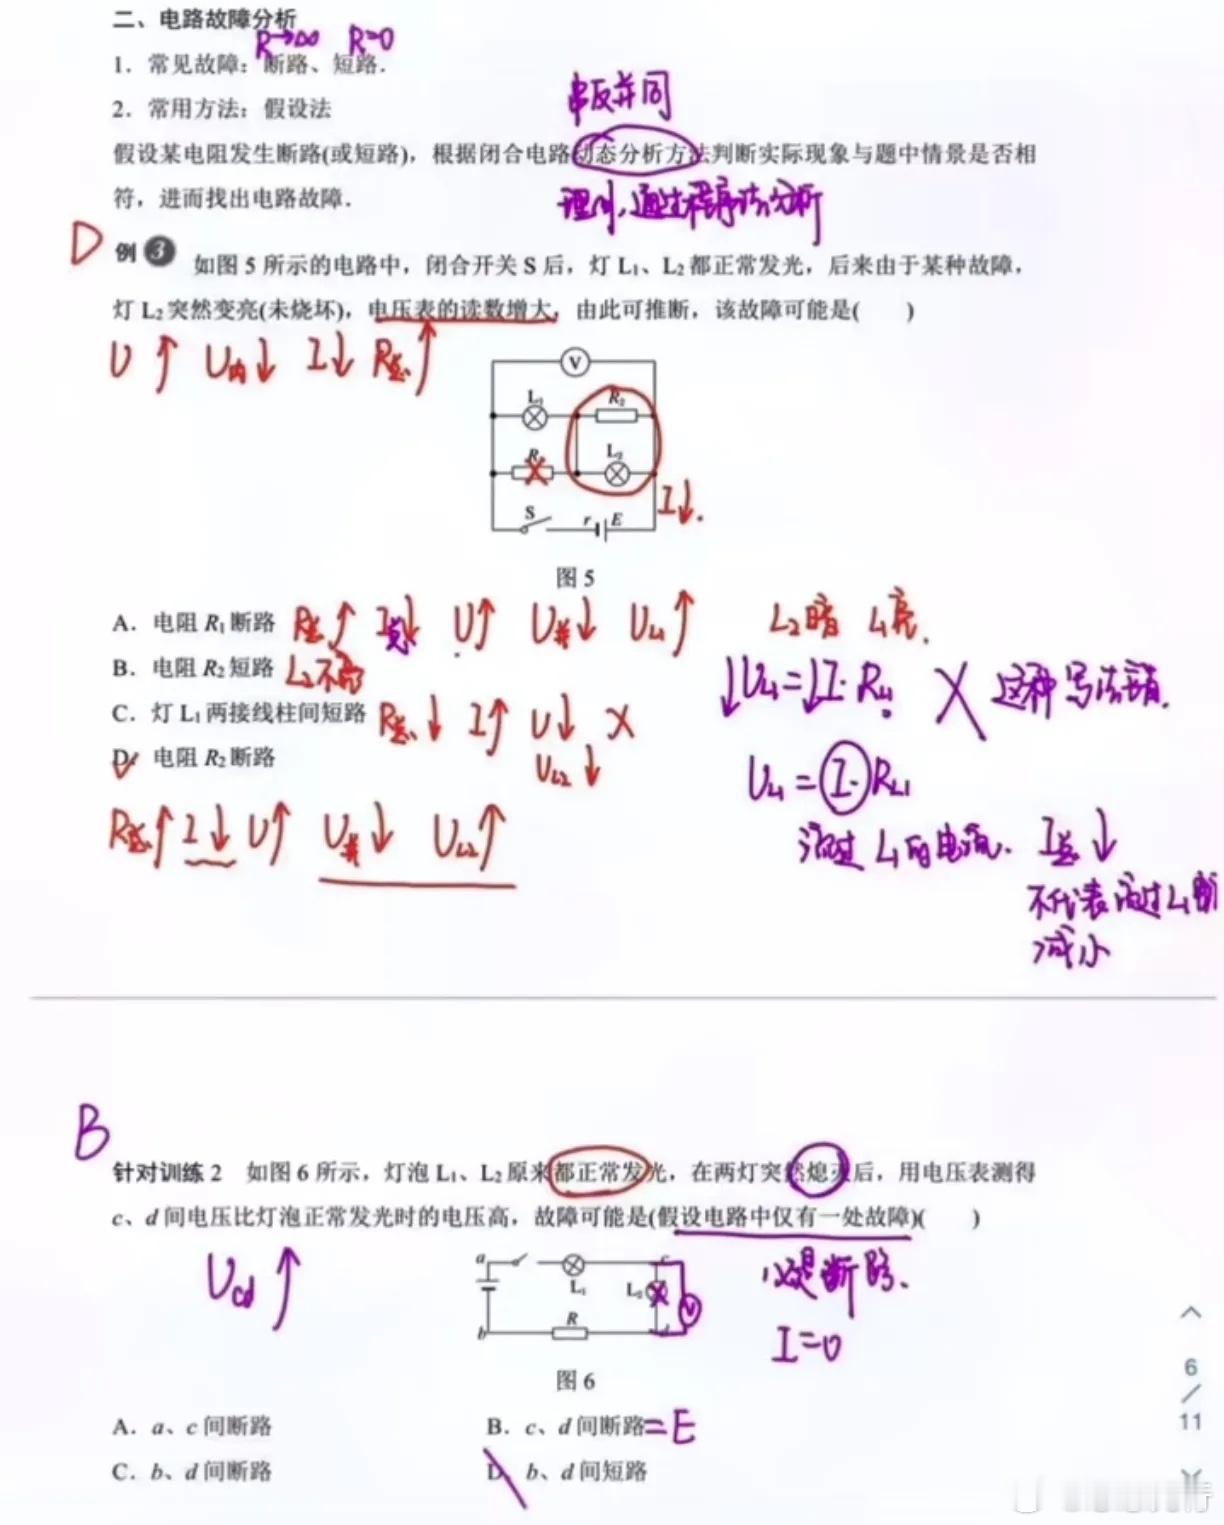 二、电路故障分析
R→∞ R=0
1．常见故障：断路、短路．
串反并同
2．常用方法：假设法
假设某电阻发生断路(或短路)，根据闭合电路动态分析方法判断实际现象与题中情景是否相
符，进而找出电路故障．
理由，通过程序法分析
D
例3 如图 5 所示的电路中，闭合开关 S 后，灯 L₁、L₂ 都正常发光，后来由于某种故障，
灯 L₂ 突然变亮(未烧坏)，电压表的读数增大，由此可推断，该故障可能是( )
U↑ U内↓ I↓ R总↑
V
L₁ R₂
R₁ L₂
I↓.
S r E
图 5
A．电阻 R₁ 断路 R总↑ I总↓ U↑ U并↓ UL1↑ L₂暗 L₁亮.
B．电阻 R₂ 短路 L₂不亮
↓UL1=↓I·RL1 × 这种写法错.
C．灯 L₁ 两接线柱间短路 R总↓ I↑ U↓ ×
D．电阻 R₂ 断路 UL2↓
UL1=I·RL1
R总↑ I↓ U↑ U并↓ UL2↑
流过L₁的电流. I总↓
不代表流过L₁的
减小
B
针对训练 2 如图 6 所示，灯泡 L₁、L₂ 原来都正常发光，在两灯突然熄灭后，用电压表测得
c、d 间电压比灯泡正常发光时的电压高，故障可能是(假设电路中仅有一处故障)( )
Ucd↑
a L₁ c
L₂ V
b R d
必是断路.
I=0
图 6
A．a、c 间断路 B．c、d 间断路=E
C．b、d 间断路 D．b、d 间短路
6
/
11